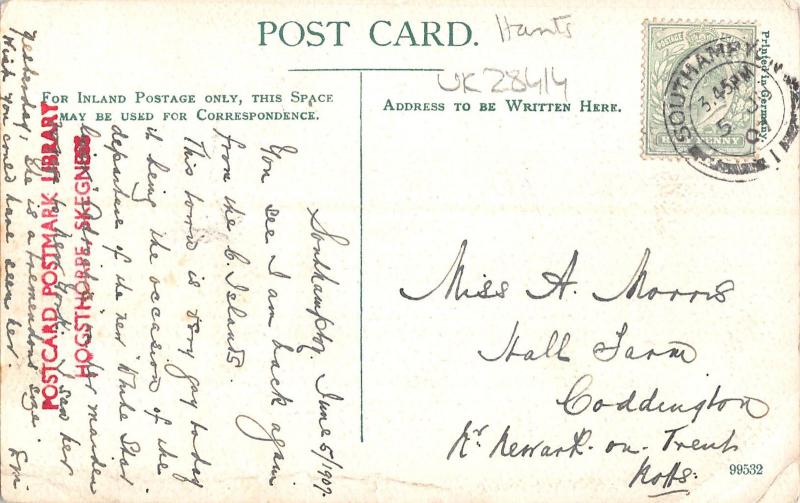 POST CARD.
Hants
UK 28414
FOR INLAND POSTAGE ONLY, THIS SPACE
MAY BE USED FOR CORRESPONDENCE.
ADDRESS TO BE WRITTEN HERE.
Printed in Germany.
SOUTHAMPTON
3.45PM
5
POSTAGE
HALFPENNY
POSTCARD POSTMARK LIBRARY
HOGSTHORPE, SKEGNESS
Southampton, June 5/1907.
You see I am back again
from the C. Islands.
This town is very gay today
it being the occasion of the
departure of the new White Star
liner "Adriatic" on her maiden
to New York. I saw her
yesterday, she is a tremendous size.
Wish you could have seen her.
Miss A. Morris
Hall Farm
Coddington
Nr. Newark-on-Trent
Notts.
99532